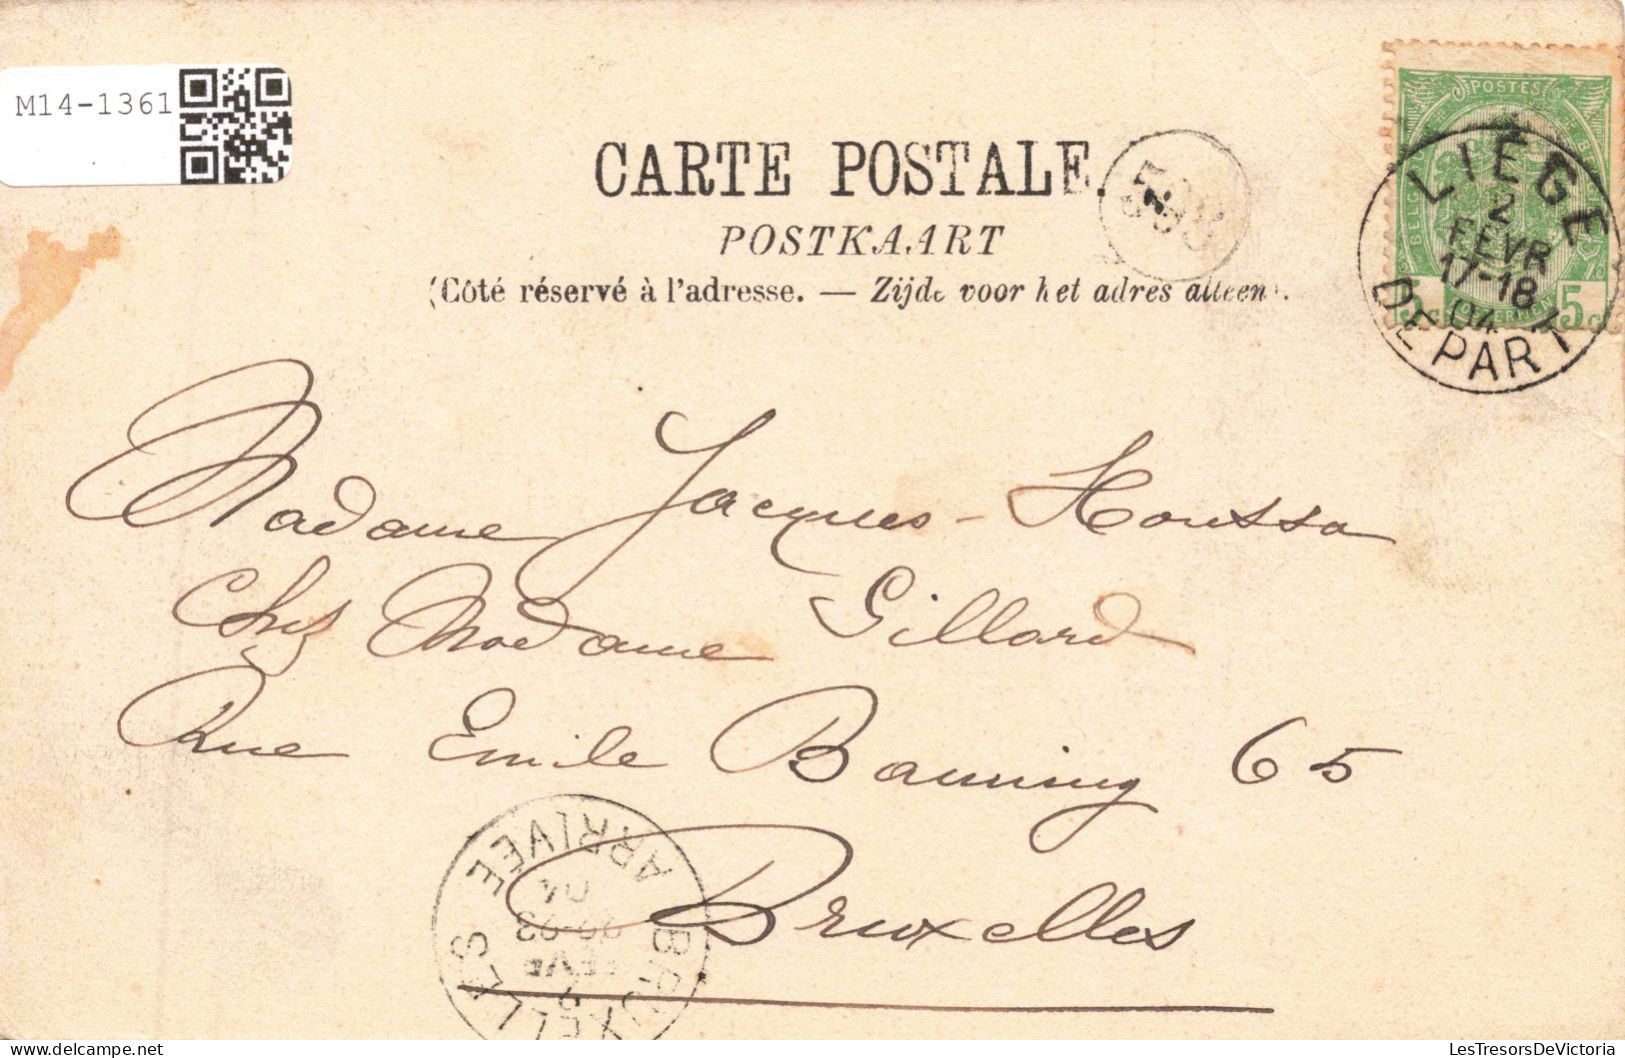 M14-1361
CARTE POSTALE.
POSTKAART
(Côté réservé à l'adresse. — Zijde voor het adres alleen).
POSTES
LIÉGE
2
FÉVR
17-18
04
DEPART
5c 5c
Madame Jacques-Houssa
Chez Madame Gillard
Rue Emile Banning 65
Bruxelles
BRUXELLES
ARRIVÉE
04
LesTresorsDeVictoria